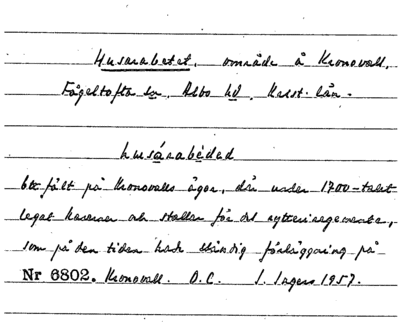 Husarabetet, område å Kronovall,
Fågeltofta sn, Albo hd, Krist. län.
husárabédəd
Ett fält på Kronovalls ägor, där under 1700-talet
legat kaserner och stallar för det rytteriregemente,
som på den tiden hade ständig förläggning på
Nr 6802. Kronovall. O.C. I. Ingers 1957.